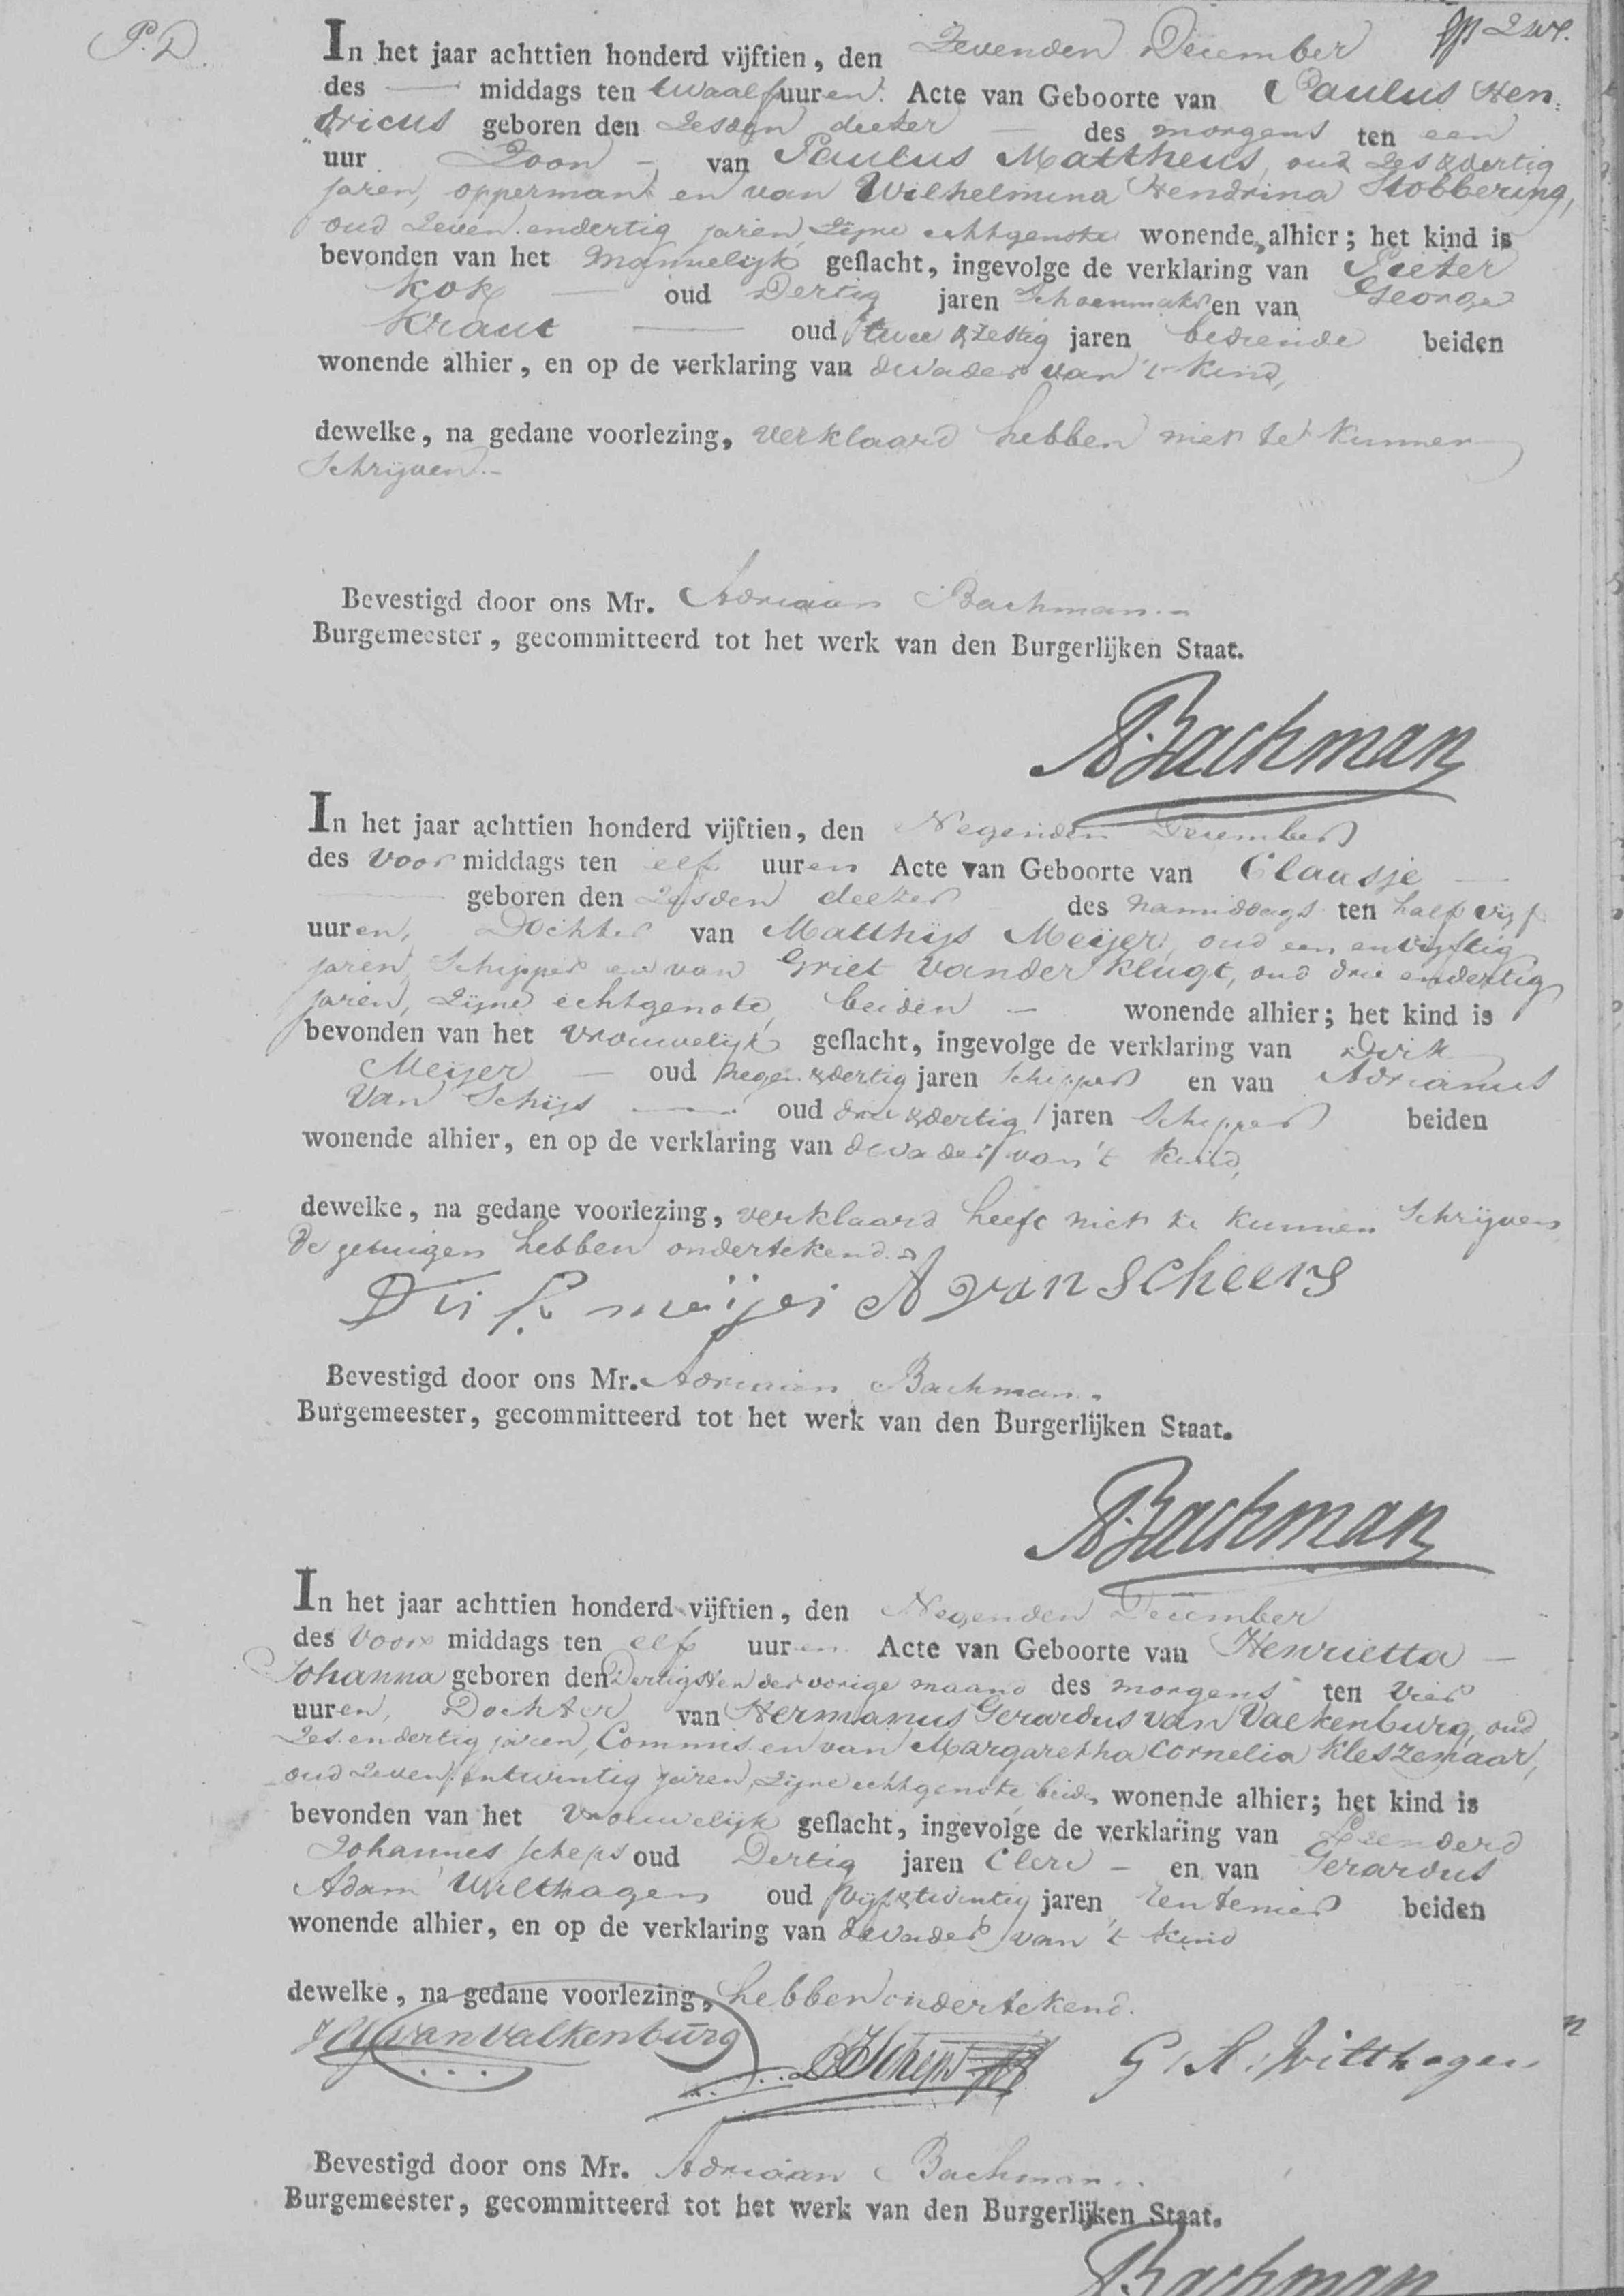 P. D.
In het jaar achttien honderd vijftien, den Zevenden December
des — middags ten twaalf uuren. Acte van Geboorte van Paulus Hen=
dricus geboren den Zesden deeter — des morgens ten een
uur Zoon — van Paulus Mattheus, oud Zes & dertig
jaren, opperman en van Wilhelmina Hendrina Stobbering,
oud Zeven endertig jaren, Zijne echtgenote wonende, alhier; het kind is
bevonden van het Mannelijk geslacht, ingevolge de verklaring van Pieter
Kok — oud Dertig jaren Schoenmaker en van George
Kraut — oud twee & zestig jaren bediende beiden
wonende alhier, en op de verklaring van de vader van 't kind,
dewelke, na gedane voorlezing, verklaard hebben niet te kunnen
Schrijven.—
Bevestigd door ons Mr. Adriaan Bachman.—
Burgemeester, gecommitteerd tot het werk van den Burgerlijken Staat.
ABachman
In het jaar achttien honderd vijftien, den Negenden December
des Voor middags ten elf uuren Acte van Geboorte van Claasje —
— geboren den Zesden deezer des namiddags ten half vijf
uuren, Dochter van Matthijs Meijer, oud een en vijftig
jaren, Schipper en van Griet Vander Klugt, oud drie endertig
jaren, Zijne echtgenote, beiden — wonende alhier; het kind is
bevonden van het Vrouwelijk geslacht, ingevolge de verklaring van Dirk
Meijer — oud negen & dertig jaren Schipper en van Adrianus
Van Schijs — oud drie & dertig jaren Schipper beiden
wonende alhier, en op de verklaring van de vader van 't kind,
dewelke, na gedane voorlezing, verklaard heeft niet te kunnen Schrijven
De getuigen hebben ondertekend.
Dirk meijer A van scheers
Bevestigd door ons Mr. Adriaan Bachman.
Burgemeester, gecommitteerd tot het werk van den Burgerlijken Staat.
ABachman
In het jaar achttien honderd vijftien, den Negenden December
des Voor middags ten elf uuren Acte van Geboorte van Henrietta —
Johanna geboren den Dertigsten der vorige maand des morgens ten vier
uuren, Dochter van Hermanus Gerardus van Valkenburg, oud
Zes en dertig jaren, Commis en van Margaretha Cornelia Kleszemaar,
oud Zeven entwintig jaren, Zijne echtgenote, beide wonende alhier; het kind is
bevonden van het Vrouwelijk geslacht, ingevolge de verklaring van Leenderd
Johannes Scheps oud Dertig jaren Clerc — en van Gerardus
Adam Wilthagen oud vijf & twintig jaren rentenier beiden
wonende alhier, en op de verklaring van de vader van 't kind
dewelke, na gedane voorlezing, hebben ondertekend.
HG van valkenburg LJScheps G: A: Wilthagen
Bevestigd door ons Mr. Adriaan Bachman.
Burgemeester, gecommitteerd tot het werk van den Burgerlijken Staat.
Bachman